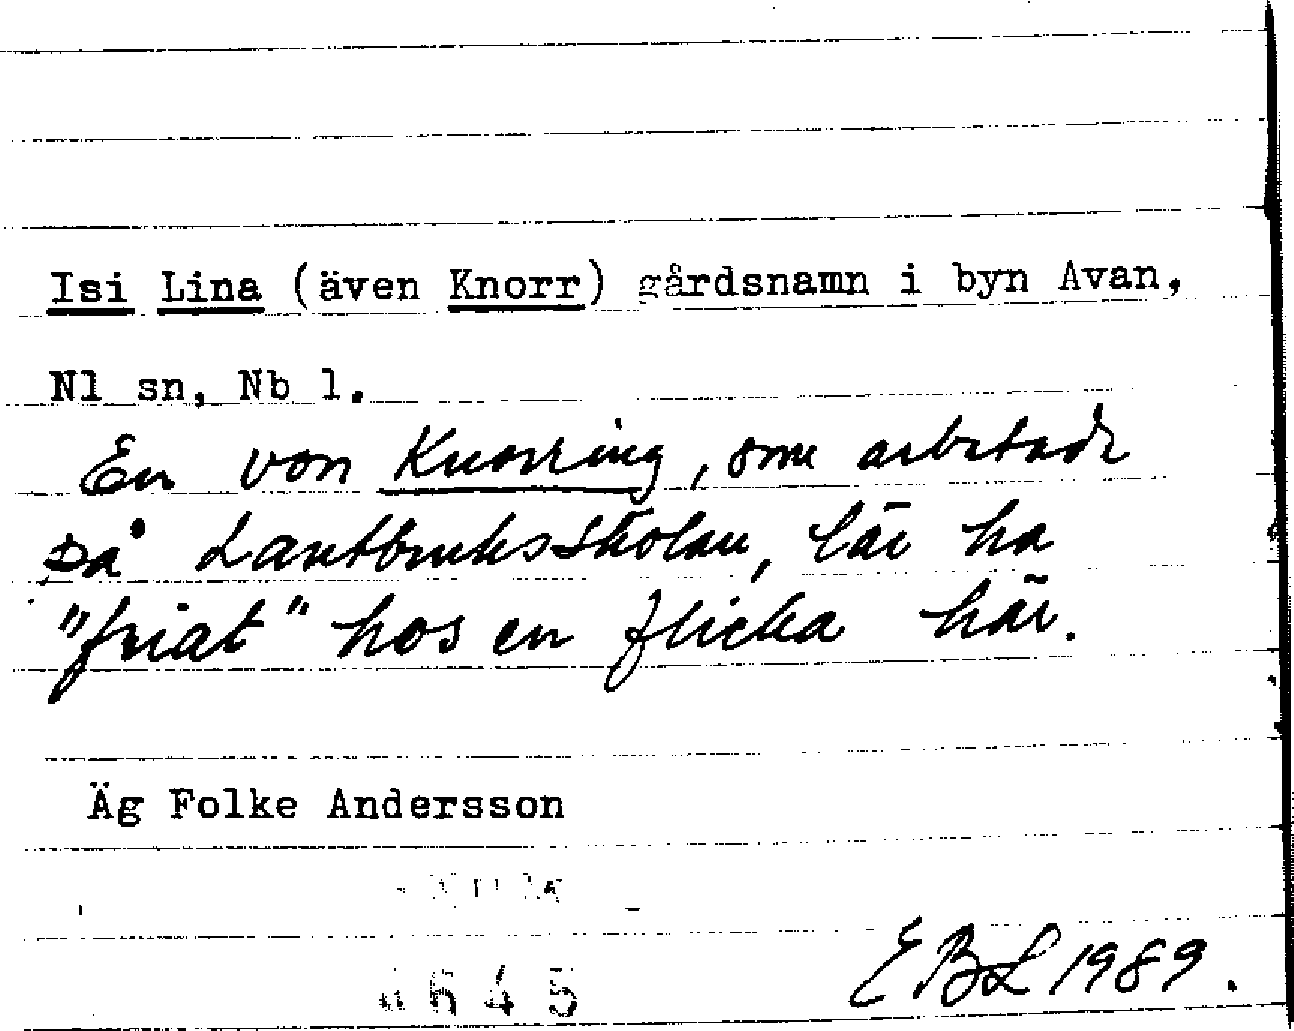 Isi Lina (även Knorr) gårdsnamn i byn Avan,
Nl sn, Nb l.
En von Knorring, som arbetade
på Lantbruksskolan, lär ha
"friat" hos en flicka här.
Äg Folke Andersson
645
EBL 1989.